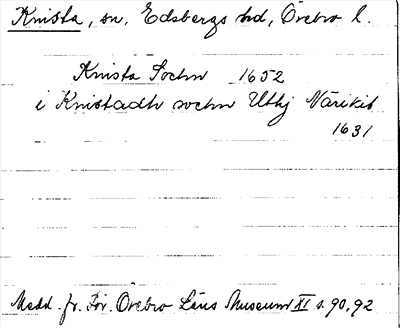 Knista, sn, Edsbergs hd, Örebro l.
Knista Sochn 1652
i Knistadh sochn Uthj Närikit
1631
Medd. fr. För. Örebro Läns Museum XI s. 90, 92